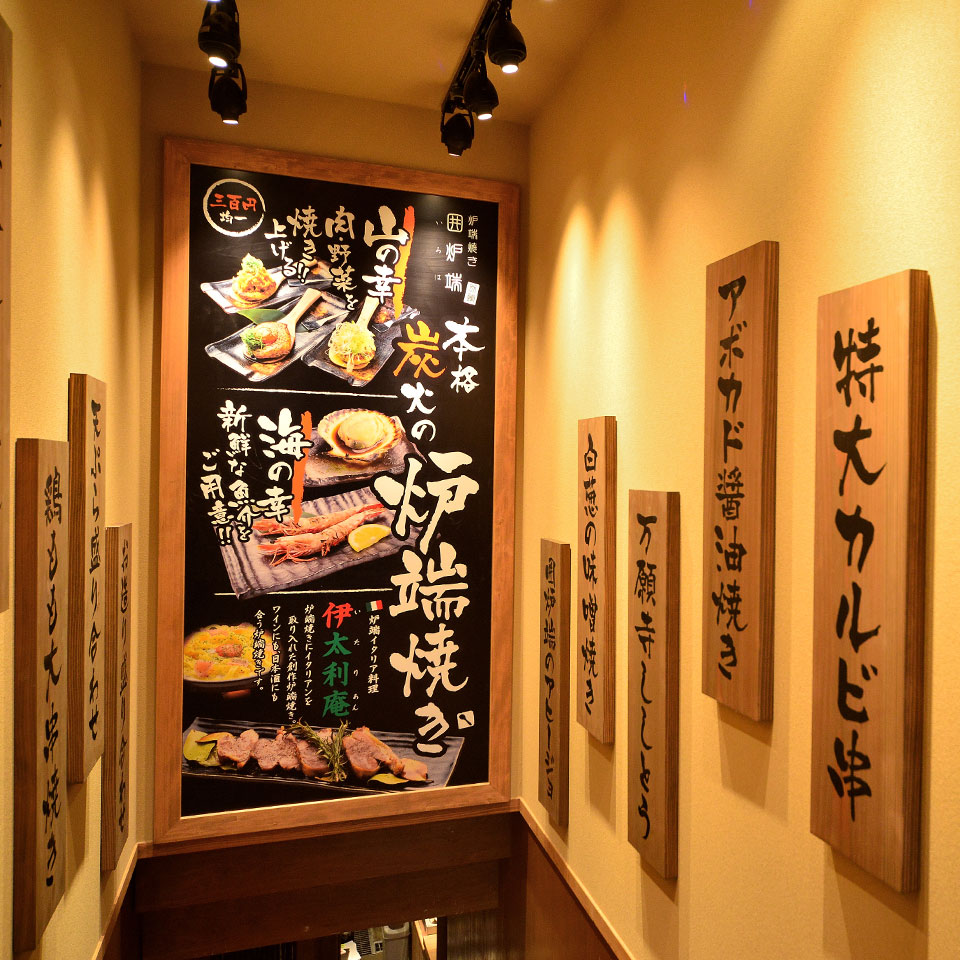 炉端焼き
囲炉端
いろは
本格
炭火の
炉端焼き
三百円
均一
山の幸
肉・野菜を
焼き
上げる!!
海の幸
新鮮な魚介を
ご用意!!
炉端イタリア料理
伊太利庵
いたりあん
炉端焼きにイタリアンを
取り入れた創作炉端焼き。
ワインにも、日本酒にも
合う炉端焼きです。
特大カルビ串
アボカド醤油焼き
万願寺ししとう
白葱の味噌焼き
囲炉端のアヒージョ
お造り盛り合わせ
天ぷら盛り合わせ
鶏もも大串焼き